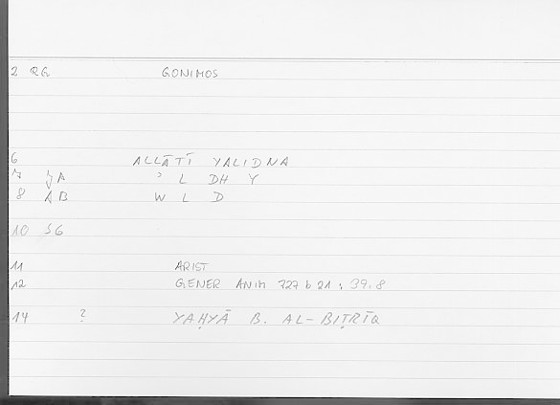 2 RG GONIMOS
6 ALLĀTĪ YALIDNA
7 ꜣA ʾ L DH Y
8 AB W L D
10 SG
11 ARIST
12 GENER ANIM 727 b 21 ; 39.8
14 ? YAḤYĀ B. AL-BIṬRĪQ